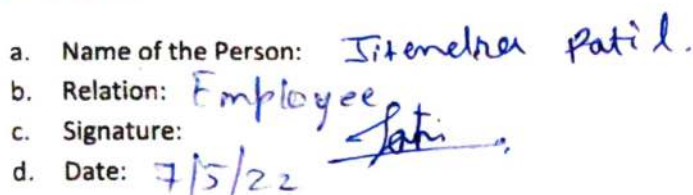 a. Name of the Person: Jitendra Patil.
b. Relation: Employee
c. Signature:
d. Date: 7/5/22